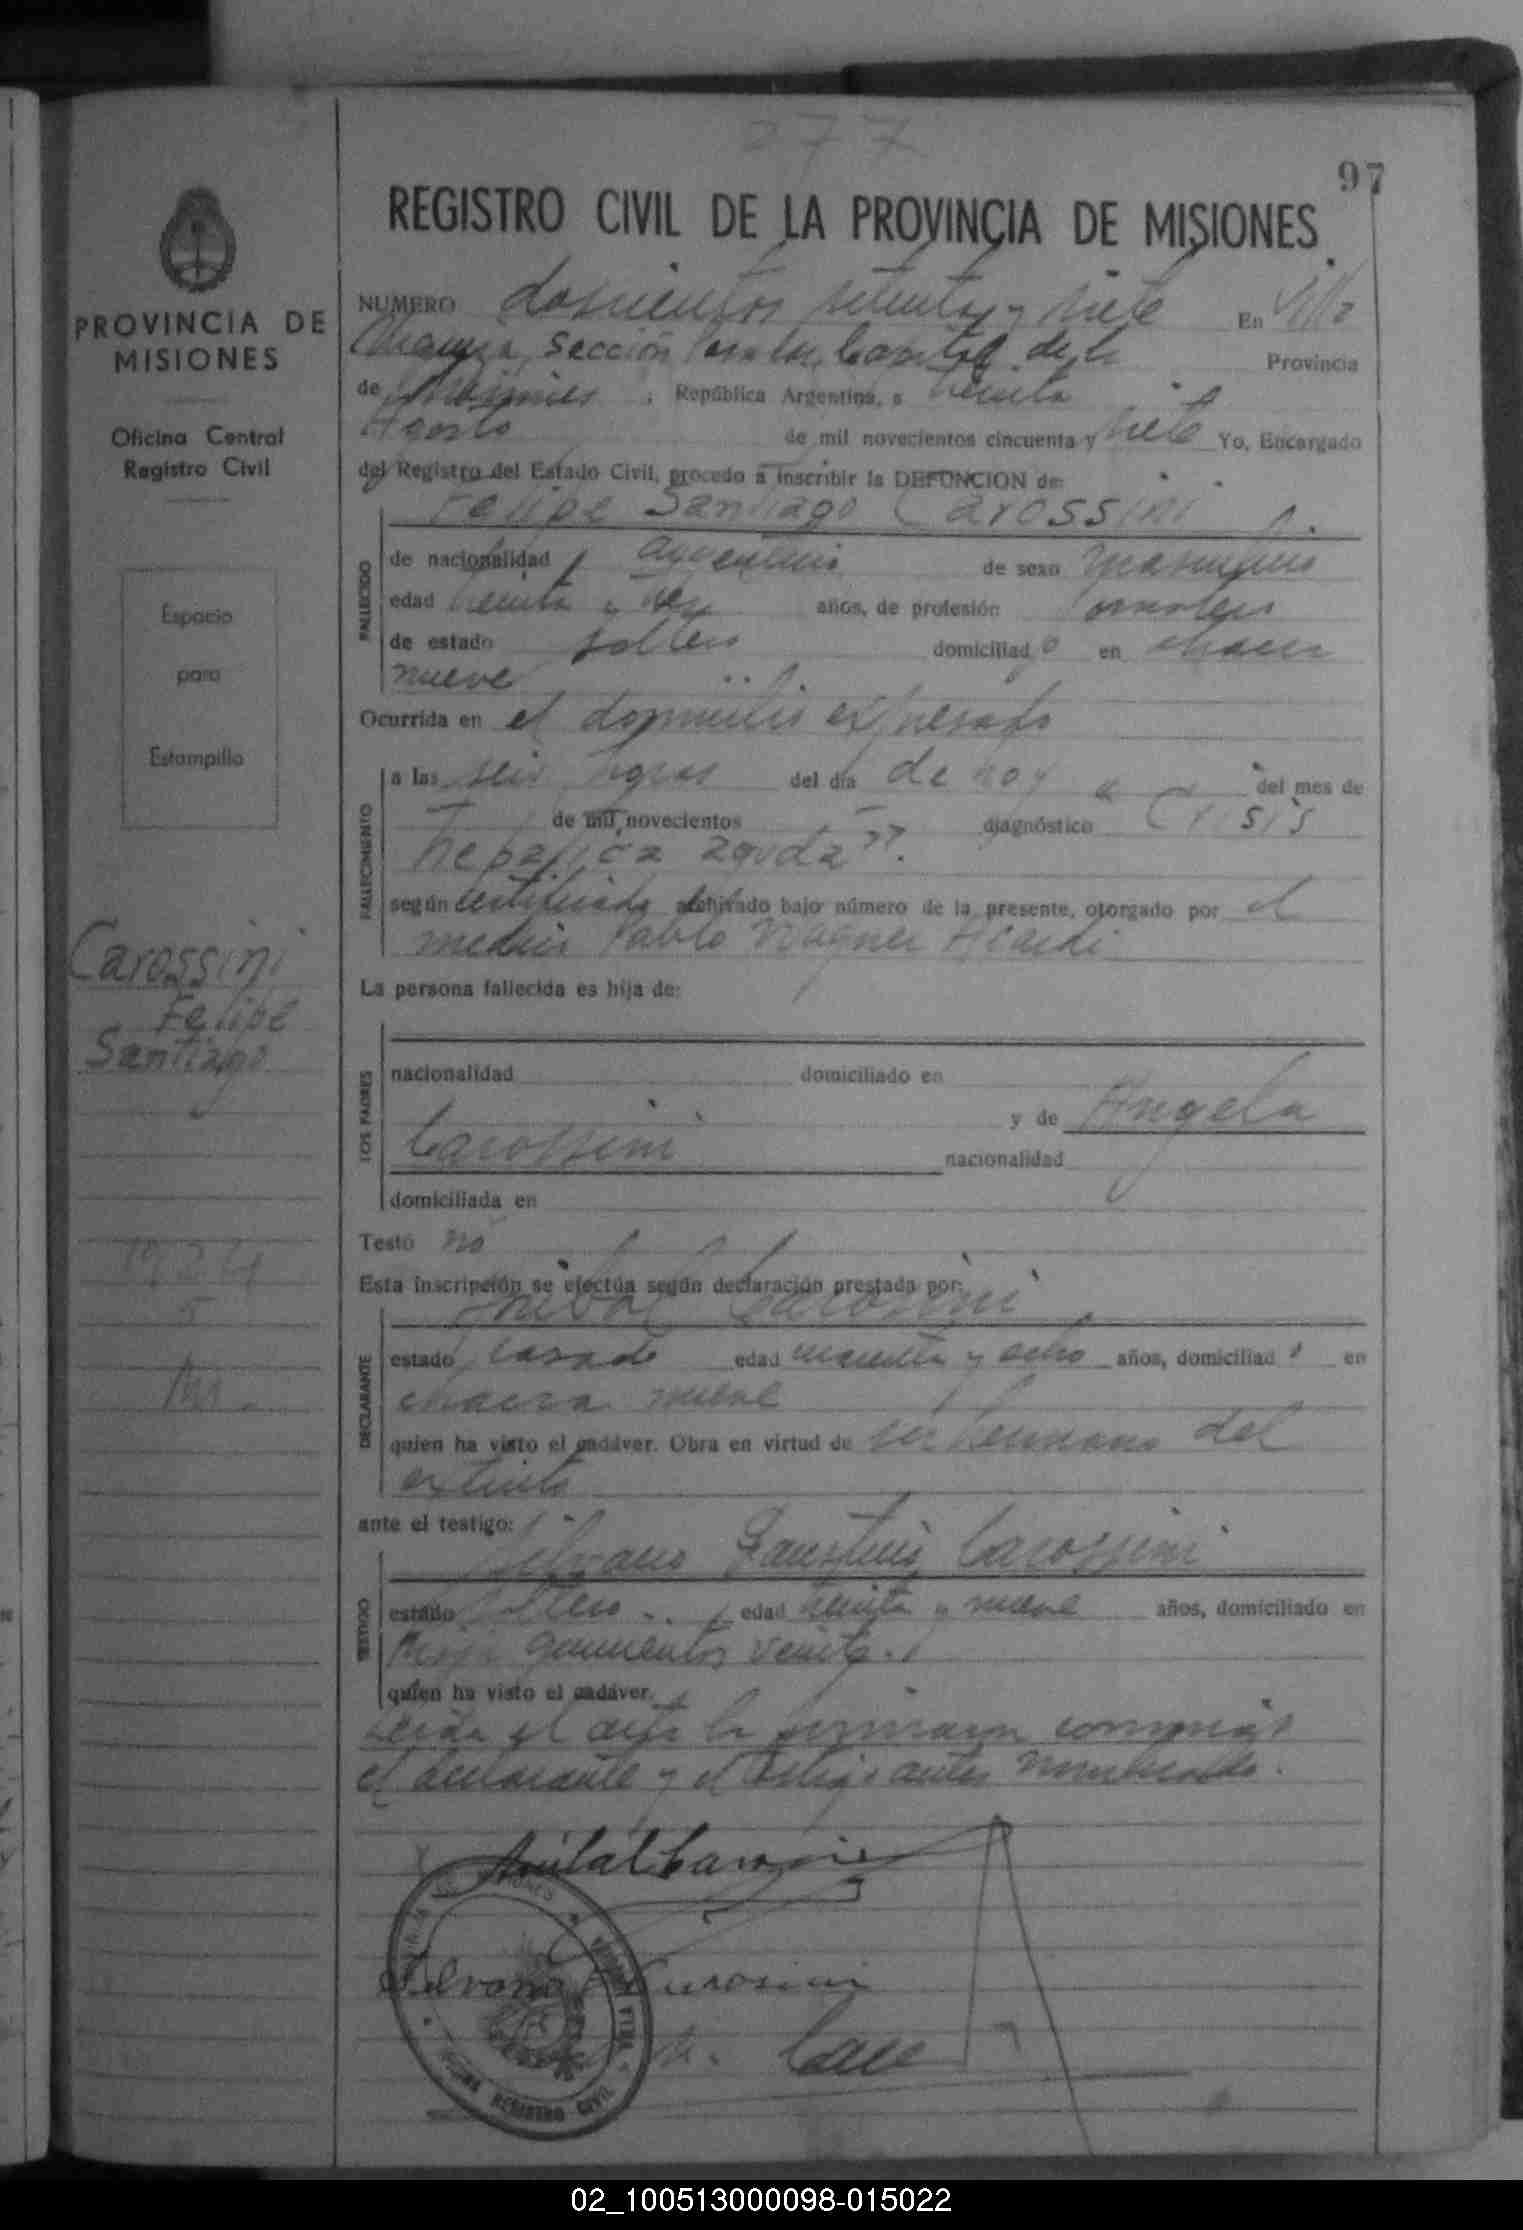 277
97
REGISTRO CIVIL DE LA PROVINCIA DE MISIONES
PROVINCIA DE
MISIONES
Oficina Central
Registro Civil
Espacio
para
Estampilla
Carossini
Felipe
Santiago
1924
5
NUMERO doscientos setenta y siete En Villa
Sección Capital de la Provincia
de Misiones ; República Argentina, a treinta
Agosto de mil novecientos cincuenta y siete Yo, Encargado
del Registro del Estado Civil, procedo a inscribir la DEFUNCION de:
Felipe Santiago Carossini
FALLECIDO
de nacionalidad argentino de sexo masculino
edad treinta y tres años, de profesión jornalero
de estado soltero domiciliado en chacra
nueve
Ocurrida en el domicilio expresado
FALLECIMIENTO
a las seis horas del día de hoy " del mes de
de mil novecientos — diagnóstico Crisis
hepatica aguda".
según certificado archivado bajo número de la presente, otorgado por el
medico Pablo Wagner
La persona fallecida es hija de:
LOS PADRES
nacionalidad domiciliado en
y de Angela
Carossini nacionalidad
domiciliada en
Testó no
Esta inscripción se efectúa según declaración prestada por:
Anibal Carossini
DECLARANTE
estado casado edad cuarenta y ocho años, domiciliado en
chacra nueve
quien ha visto el cadáver. Obra en virtud de ser hermano del
extinto
ante el testigo:
Silvano Faustino Carossini
TESTIGO
estado soltero edad treinta y nueve años, domiciliado en
Rioja quinientos veinte.
quien ha visto el cadáver.
Leida el acta la firmaron conmigo
el declarante y el testigo antes nombrados.
Anibal Carossini
Silvano Carosini
OFICINA REGISTRO CIVIL
02_100513000098-015022